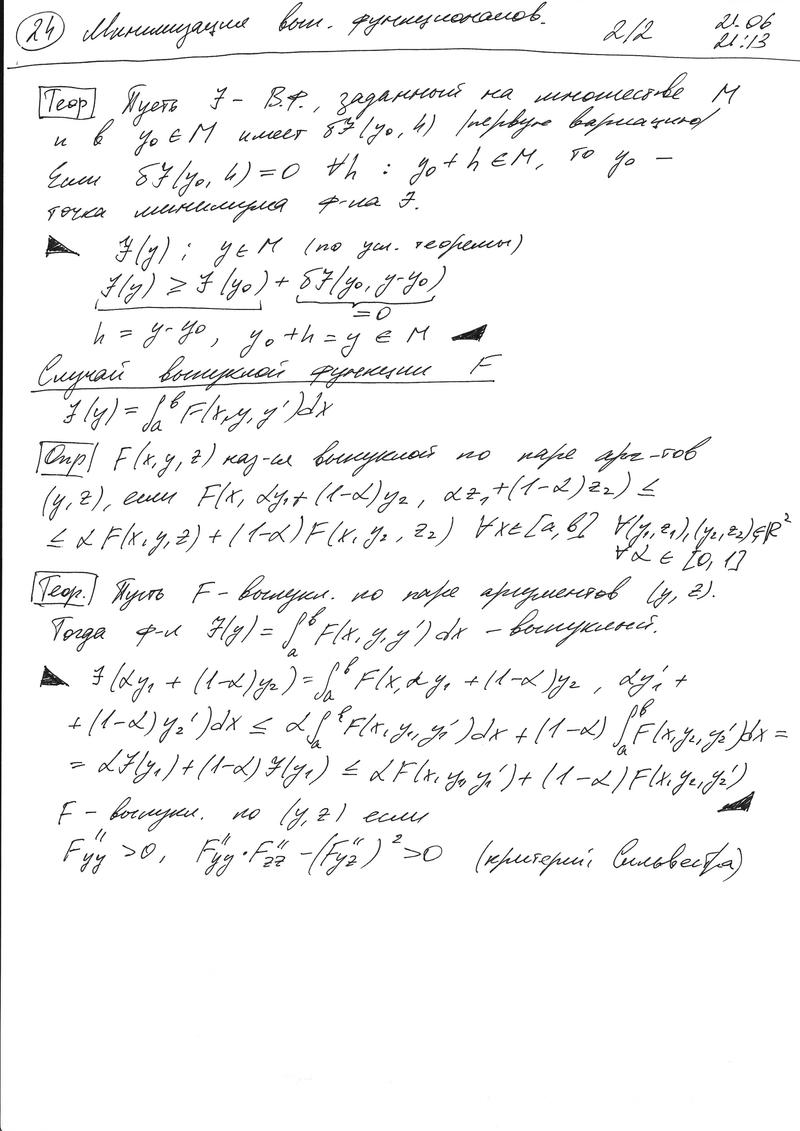 24 Минимизация вып. функционалов. 2/2 21.06
21:13
Теор Пусть J – В.Ф., заданный на множестве M
и в y₀ ∈ M имеет δJ(y₀, h) /первую вариацию/
Если δJ(y₀, h) = 0 ∀h : y₀ + h ∈ M, то y₀ –
точка минимума ф-ла J.
J(y) ; y ∈ M (по усл. теоремы)
J(y) ≥ J(y₀) + δJ(y₀, y-y₀)
= 0
h = y - y₀, y₀ + h = y ∈ M
Случай выпуклой функции F
J(y) = ∫ₐᵇ F(x, y, y')dx
Опр F(x, y, z) наз-ся выпуклой по паре арг-тов
(y, z), если F(x, αy₁ + (1-α)y₂, αz₁ + (1-α)z₂) ≤
≤ αF(x, y, z) + (1-α)F(x, y₂, z₂) ∀x∈[a, b] ∀(y₁, z₁), (y₂, z₂) ∈ ℝ²
∀α ∈ [0, 1]
Теор. Пусть F – выпукл. по паре аргументов (y, z).
Тогда ф-л J(y) = ∫ₐᵇ F(x, y, y')dx – выпуклый.
J(αy₁ + (1-α)y₂) = ∫ₐᵇ F(x, αy₁ + (1-α)y₂, αy₁' +
+ (1-α)y₂')dx ≤ α∫ₐᵇ F(x, y₁, y₁')dx + (1-α)∫ₐᵇ F(x, y₂, y₂')dx =
= αJ(y₁) + (1-α)J(y₁) ≤ αF(x, y₁, y₁') + (1-α)F(x, y₂, y₂')
F – выпукл. по (y, z) если
F''yy > 0, F''yy · F''zz - (F''yz)² > 0 (критерий Сильвестра)